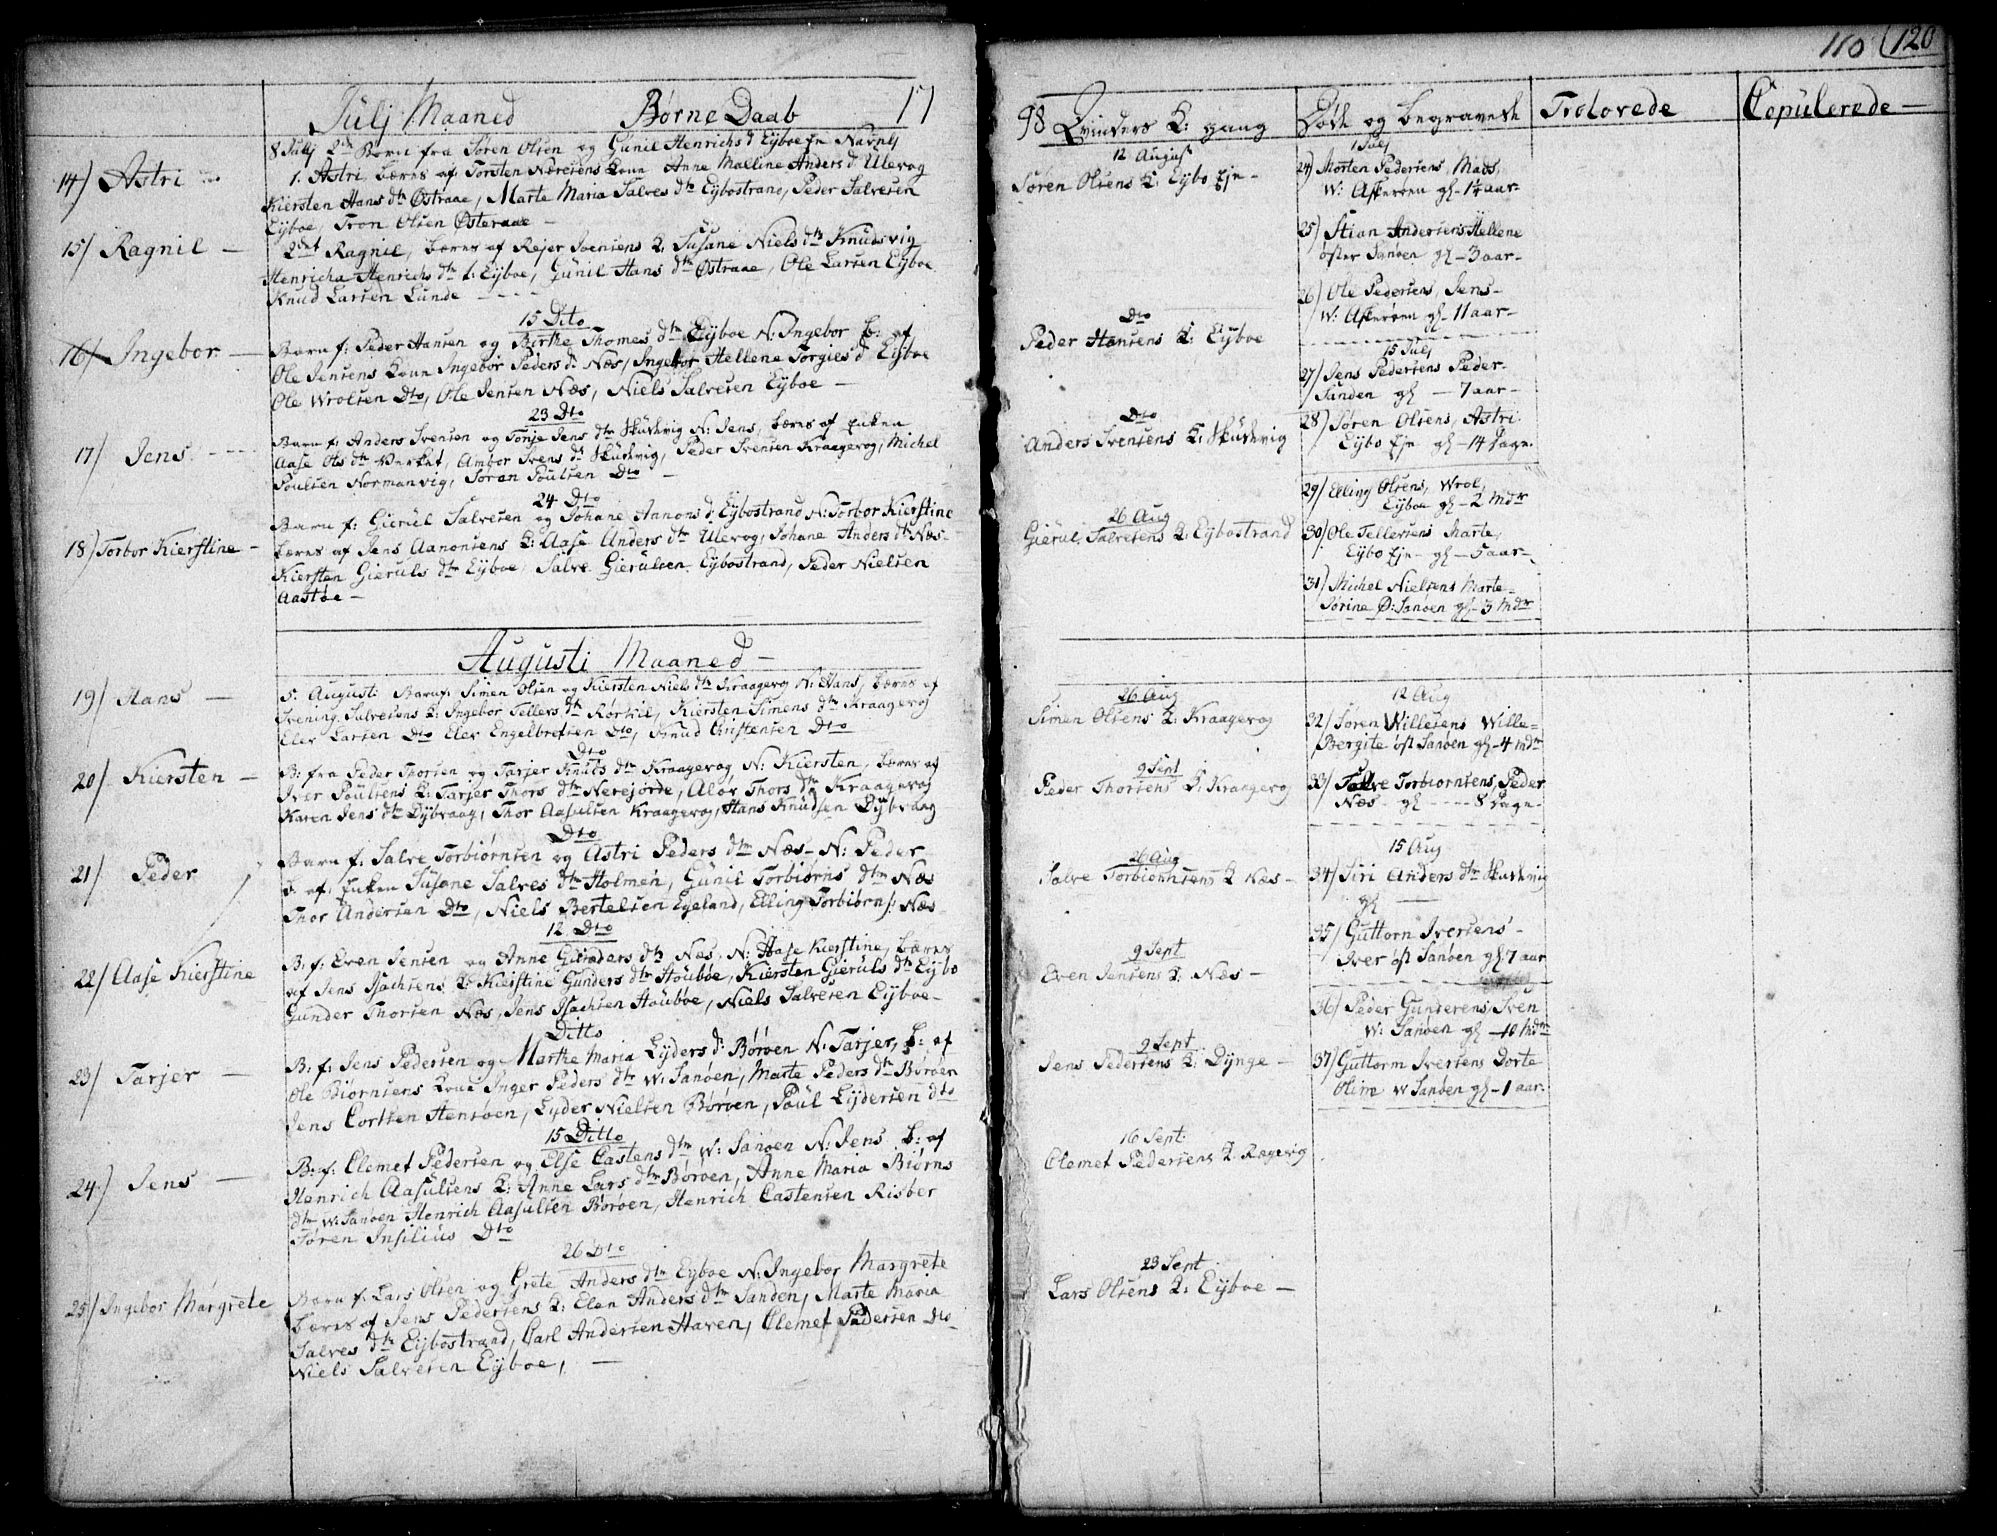 Julj Maaned Børne Daab 17
14) Astri
8 Julj 2de Børn fra Søren Olsen og Gunil Henrichs d Eijboe Ejn Navnlj
1. Astri bæres af Torsten Kone Anne Malline Anders d Ulevog
Kiersten Hans dtr Østraae, Marte Maria Salves dtr Eijbostrand, Peder Salvesen
Eijboe, Tron Olsen Østeraae —
15) Ragnil —
2det Ragnil, bæres af Rejer Svensens K. Susane Niels dtr Knudsvig
Henricha Henrichs dtr Eijboe, Gunil Hans dtr Østraae, Ole Larsen Eijboe
Knud Larsen Lunde
15 Dito
16) Ingebor —
Barn f: Peder Hansen og Birthe Thomes dtr Eijboe N: Ingebor b: af
Ole Jensens Kone Ingebor Peders d. Næs, Ingebor Hellene Torgies d Eijboe
Ole Wrolsen Dto, Ole Jensen Næs, Niels Salvesen Eijboe —
23 Dto
17) Jens
Barn f: Anders Svensen og Tonje Jens dtr Skudevig N: Jens, bæres af Enken
Aase Ols dtr Verket, Ambor Svens d. Skudevig, Peder Svensen Kraagevog, Michel
Poulsen Normanvig, Søren Poulsen Dto —
24 Dto
18) Torbor Kierstine —
Barn f: Gierul Salvesen og Johane Annons d. Eijbostrand N: Torbor Kierstine
bæres af Jens Aanonsens K: Aase Anders dtr Ulevog, Johane Anders dtr Næs
Kiersten Gieruls dtr Eijboe, Salve Gierulsen Eijbostrand, Peder Nielsen
Aastøe —
Augusti Maaned —
19) Hans —
5. Augusti Barn f: Simen Olsen og Kiersten Niels dtr Kraagevog N: Hans, bæres af
Svening Salvesens K: Ingebor Tellefs dtr Rørkil, Kiersten Simens dtr Kraagevog
Elev Larsen Dto Elev Engelbretsen Dto, Knud Christensen Dto
Dto
20) Kiersten —
B: fra Peder Thorsen og Tarjer Knuts dtr Kraagevog N: Kiersten, bæres af
Iver Poulsens K: Tarjer Thors dtr Nerejorde, Alov Thors dtr Kraagevog
Karen Jens dtr Dijbvaag, Thor Aasulsen Kraagevog, Hans Knudsen Dijbvaag
Dto
21) Peder
Barn f: Salve Torbiørnsen og Astri Peders dtr Næs — N: Peder
b. af: Enken Susane Salves dtr Holmen, Gunil Torbiørns dtr Næs
Thor Andersen Dto, Niels Bertelsen Egeland, Elling Torbiørns: Næs
12 Dto
22) Aase Kierstine
B: f: Even Jensen og Anne Gunders dtr Næs. N: Aase Kierstine, bæres
af Jens Isachsens K: Kierstine Gunders dtr Houbøe, Kiersten Gieruls dtr Eijbo
Gunder Thorsen Næs, Jens Isachsen Houbøe, Niels Salvesen Eijboe —
Ditto
23) Tarjer —
B: f: Jens Pedersen og Marthe Maria Lijders d: Børøen N: Tarjer, b: af
Ole Biørnsens Kone Inger Peders dtr W: Sanøen, Marte Peders dtr Børøen
Jens Cortsen Hensøen, Lyder Nielsen Børøen, Poul Lijdersen dto
15 Ditto
24) Jens —
B: f: Clemet Pedersen og Else Castens dtr W: Sanøen N: Jens b: af
Henrich Aasulsens K: Anne Lars dtr Børøen, Anne Maria Biørns
dtr W: Sanøen Henrich Aasulsen Børøen, Henrich Castensen Risøer
Søren Insilius Dto
26 Dto
25) Ingebor Margrete
Barn f: Lars Olsen og Grete Anders dtr Eijboe N: Ingebor Margrete
bæres af Jens Pedersens K: Elen Anders dtr Sanden, Marte Maria
Salves dtr Eijbostrand, Carl Andersen Haven, Clemet Pedersen Dto
Niels Salvesen Eijboe, —
110 (120
98 Qvinders K: gang
Døde og begravede
Trolovede
Copulerede —
12 August
Søren Olsens K: Eijbo Ejn —
Dto
Peder Hansens K: Eijboe
Dto
Anders Svensens K: Skudevig
26 Aug
Gierul Salvesens K: Eijbostrand
26 Aug
Simen Olsens K: Kraagevog
9 Sept
Peder Thorsens K: Kraagevog
26 Aug
Salve Torbiørnsens K Næs —
9 Sept
Even Jensens K: Næs —
9 Sept
Jens Pedersens K: Dynge —
16 Sept:
Clemet Pedersens K: Ragevig
23 Sept
Lars Olsens K: Eijboe —
1 Julj
24) Morten Pedersens, Mads,
W: Askerøen gl — 14 aar
25) Stian Andersens Hellene
øster Sanøen gl — 3 aar —
26) Ole Pedersens, Jens —
W: Askerøen gl — 11 aar —
15 Julj
27) Jens Pedersens Peder
Sanden gl — 7 aar —
28) Søren Olsens, Astri
Eijbo Ejn gl — 14 Dage
29) Elling Olsens, Wrol,
Eijboe gl — 2 Mdr
30) Ole Tellefsens Marte,
Eijbo Ejn — gl — 5 aar —
31) Michel Nielsens Marte
Sørine Ø: Sanøen gl — 3 Mdr
12 Aug
32) Søren Willesens Wille
Bergite øst Sanøen gl — 4 Mdr
33) Salve Torbiornsens, Peder
Næs — gl — 8 Dage —
15 Aug
34) Siri Anders dtr Skudevig
gl —
35) Guttorm Iversens —
Iver øst Sanøen gl: 7 aar
36) Peder Gundersens, Sven
W: Sanøen gl — 10 Mdr
37) Guttorm Iversens Dorte
Oline W Sanøen gl — 1 aar